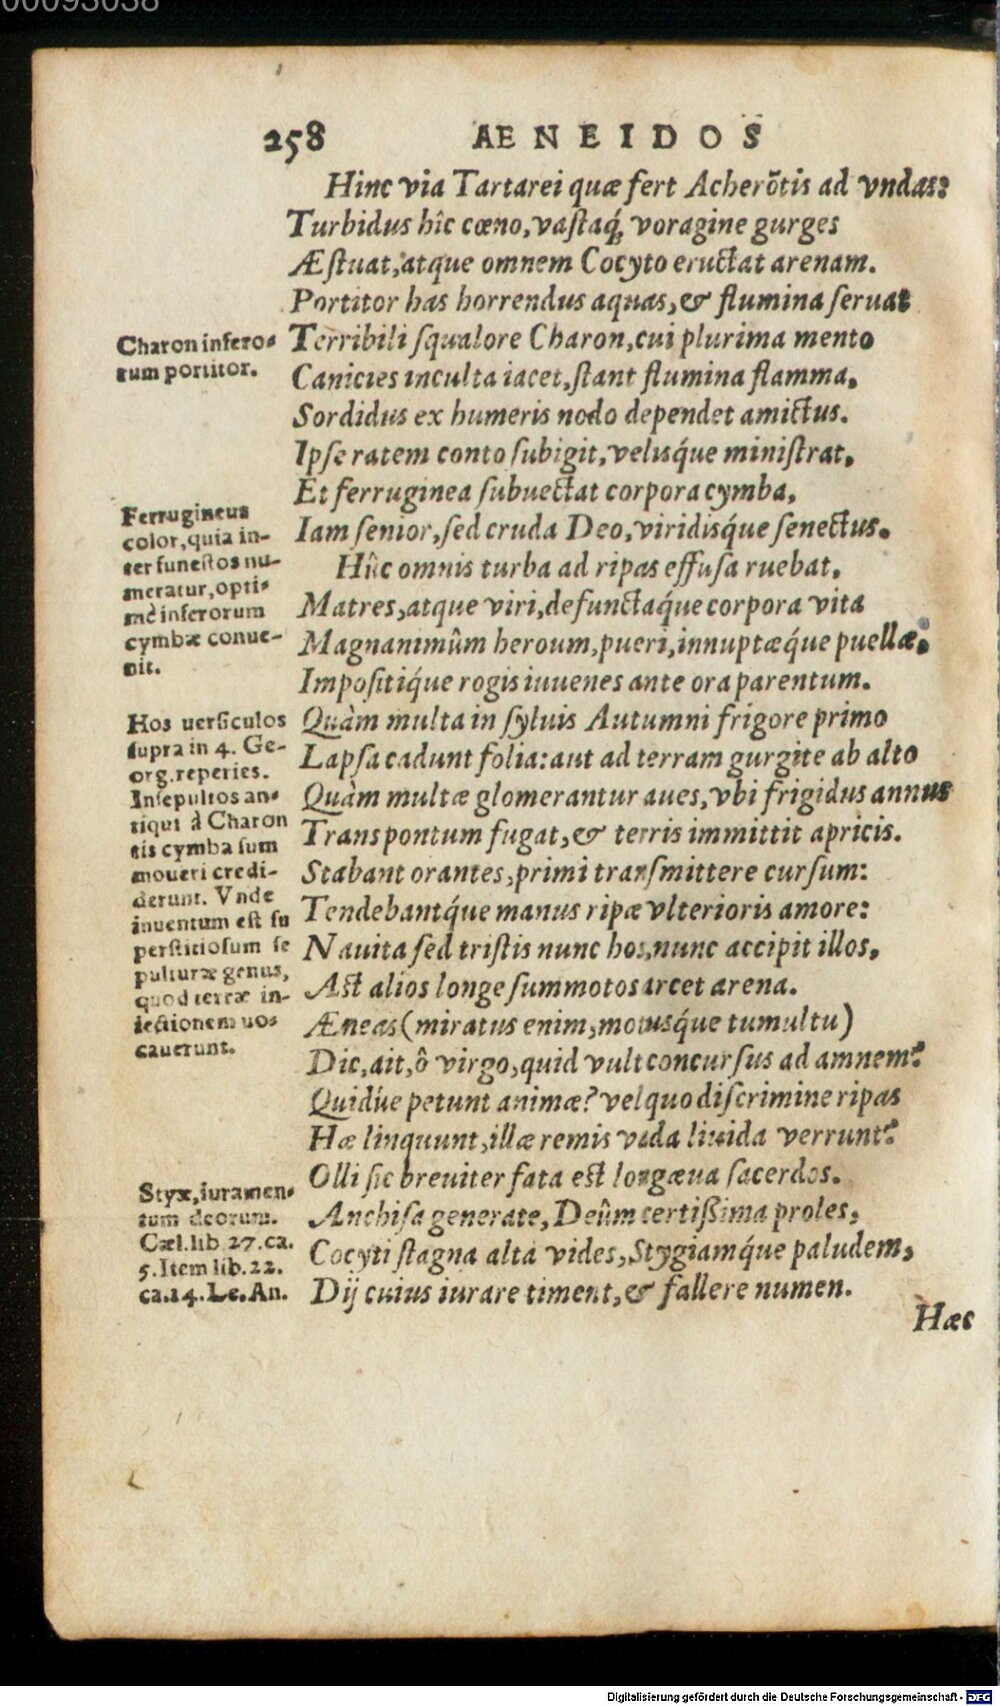 00093038
258 AENEIDOS
Hinc via Tartarei quæ fert Acherõtis ad vndas:
Turbidus hîc cœno, vaſtaq́; voragine gurges
Æſtuat, atque omnem Cocyto eructat arenam.
Portitor has horrendus aquas, & flumina ſeruat
Charon infero-
rum portitor.
Terribili ſqualore Charon, cui plurima mento
Canicies inculta iacet, ſtant flumina flamma,
Sordidus ex humeris nodo dependet amictus.
Ipſe ratem conto ſubigit, velisq́ue miniſtrat,
Et ferruginea ſubuectat corpora cymba,
Iam ſenior, ſed cruda Deo, viridisq́ue ſenectus.
Ferrugineus
color, quia in-
ter funeſtos nu-
meratur, opti-
mè inferorum
cymbæ conue-
nit.
Hûc omnis turba ad ripas effuſa ruebat,
Matres, atque viri, defunctaq́ue corpora vita
Magnanimûm heroum, pueri, innuptæq́ue puellæ,
Impoſitiq́ue rogis iuuenes ante ora parentum.
Quàm multa in ſyluis Autumni frigore primo
Lapſa cadunt folia: aut ad terram gurgite ab alto
Quàm multæ glomerantur aues, vbi frigidus annus
Trans pontum fugat, & terris immittit apricis.
Stabant orantes, primi tranſmittere curſum:
Tendebantq́ue manus ripæ vlterioris amore:
Nauita ſed triſtis nunc hos, nunc accipit illos,
Aſt alios longe ſummotos arcet arena.
Hos uerſiculos
ſupra in 4. Ge-
org. reperies.
Inſepultos an-
tiqui à Charon
tis cymba ſum
moueri credi-
derunt. Vnde
inuentum eſt ſu
perſtitioſum ſe
pulturæ genus,
quod terræ in-
iectionem uos
cauerunt.
Æneas (miratus enim, motusq́ue tumultu)
Dic, ait, ô virgo, quid vult concurſus ad amnem?
Quidúe petunt animæ? vel quo diſcrimine ripas
Hæ linquunt, illæ remis vada liuida verrunt?
Olli ſic breuiter fata eſt longæua ſacerdos.
Anchiſa generate, Deûm certißima proles,
Cocyti ſtagna alta vides, Stygiamq́ue paludem,
Dij cuius iurare timent, & fallere numen.
Styx, iuramen-
tum deorum.
Cæl. lib. 27. ca.
5. Item lib. 22.
ca. 14. Le. An.
Hæc
Digitalisierung gefördert durch die Deutsche Forschungsgemeinschaft - DFG